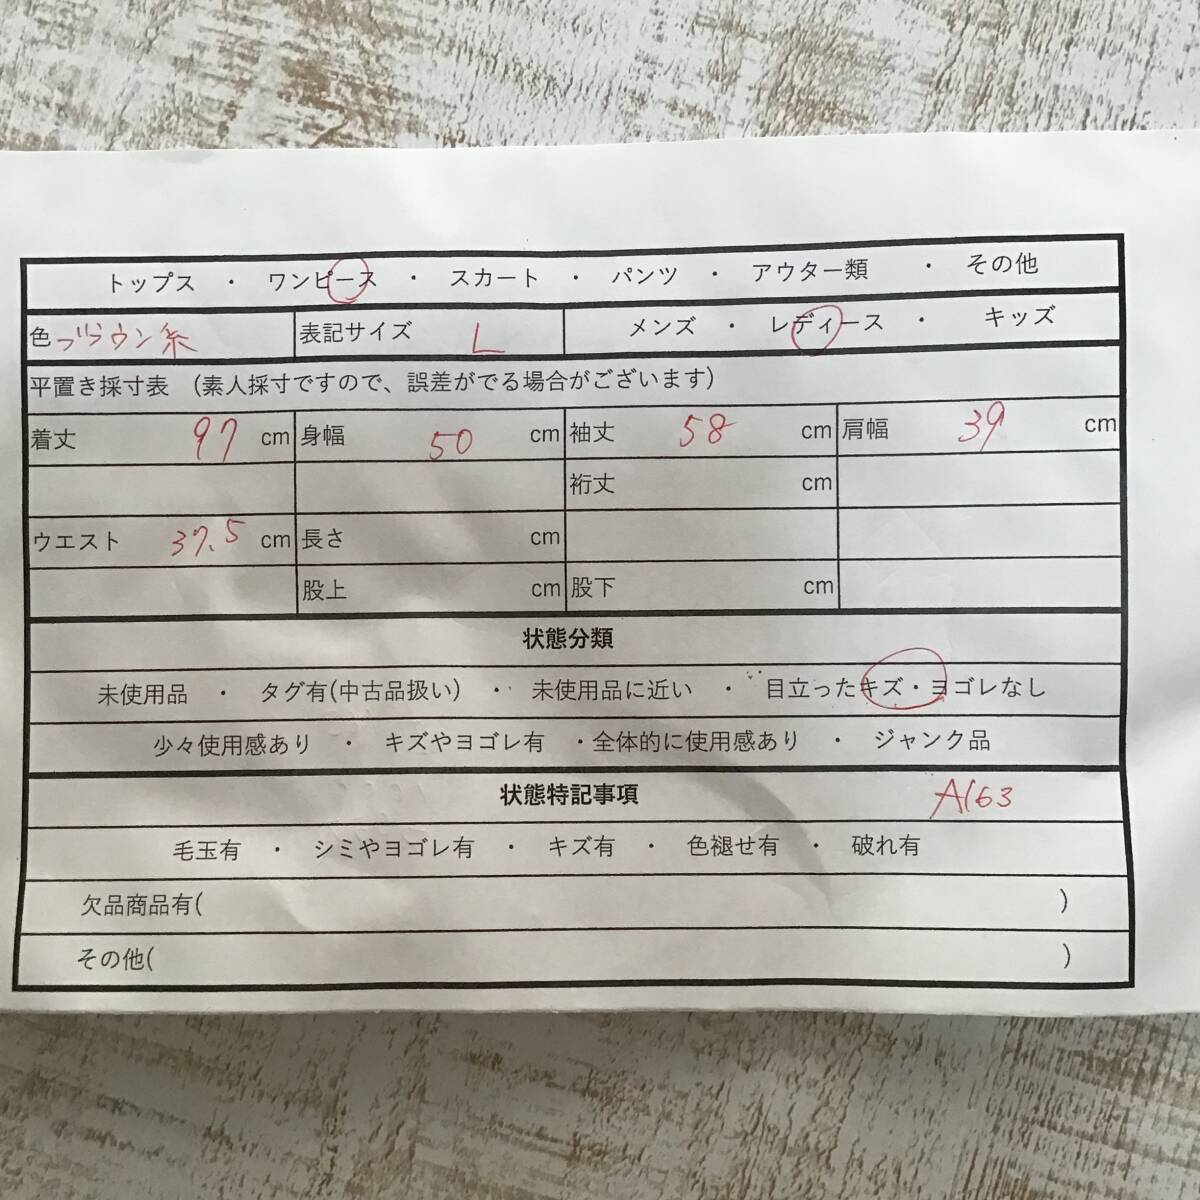 トップス ・ ワンピース ・ スカート ・ パンツ ・ アウター類 ・ その他
色 ブラウン系 表記サイズ L メンズ ・ レディース ・ キッズ
平置き採寸表 (素人採寸ですので、誤差がでる場合がございます)
着丈 97 cm 身幅 50 cm 袖丈 58 cm 肩幅 39 cm
裄丈 cm
ウエスト 37.5 cm 長さ cm
股上 cm 股下 cm
状態分類
未使用品 ・ タグ有(中古品扱い) ・ 未使用品に近い ・ 目立ったキズ・ヨゴレなし
少々使用感あり ・ キズやヨゴレ有 ・全体的に使用感あり ・ ジャンク品
状態特記事項 A163
毛玉有 ・ シミやヨゴレ有 ・ キズ有 ・ 色褪せ有 ・ 破れ有
欠品商品有( )
その他( )